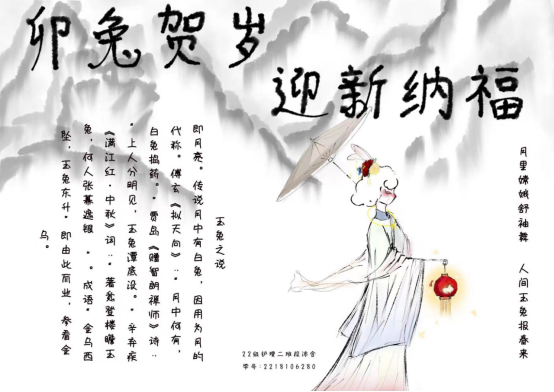 卯兔贺岁
迎新纳福
月里嫦娥舒袖舞 人间玉兔报春来
玉兔之说
即月亮。传说月中有白兔，因用为月的
代称。傅玄《拟天问》："月中何有，
白兔捣药。"贾岛《赠智朗禅师》诗：
"上人分明见，玉兔潭底没。"辛弃疾
《满江红·中秋》词："著意登楼瞻玉
兔，何人张幕遮银 "。成语"金乌西
坠，玉兔东升"即由此而业，参看金
乌。
22级护理二班段沛含
学号：2218106280